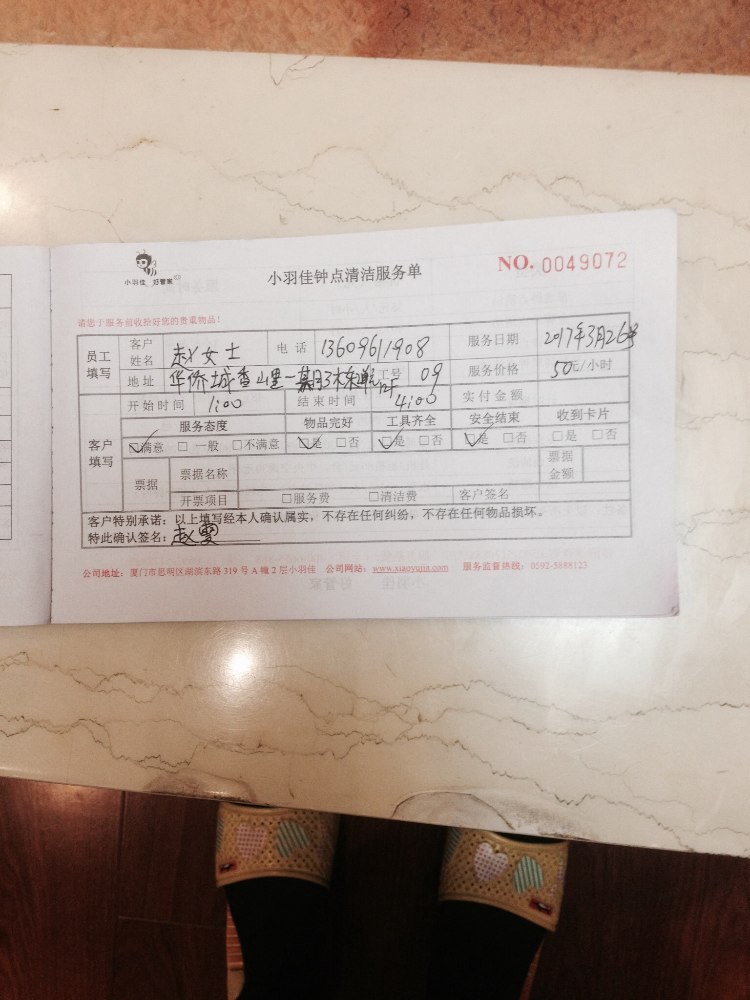 小羽佳 好管家
小羽佳钟点清洁服务单
NO. 0049072
请您于服务前收拾好您的贵重物品!
员工填写 客户姓名 赵女士 电话 13609611908 服务日期 2017年3月26号
地址 华侨城香山里一期 工号 09 服务价格 50元/小时
开始时间 1:00 结束时间 4:00 实付金额
客户填写 服务态度 物品完好 工具齐全 安全结束 收到卡片
☑满意 □一般 □不满意 ☑是 □否 ☑是 □否 ☑是 □否 □是 □否
票据 票据名称 票据金额
开票项目 □服务费 □清洁费 客户签名
客户特别承诺:以上填写经本人确认属实,不存在任何纠纷,不存在任何物品损坏。
特此确认签名:赵雯
公司地址:厦门市思明区湖滨东路 319 号 A 幢 2 层小羽佳 公司网站:www.xiaoyujia.com 服务监督热线:0592-5888123